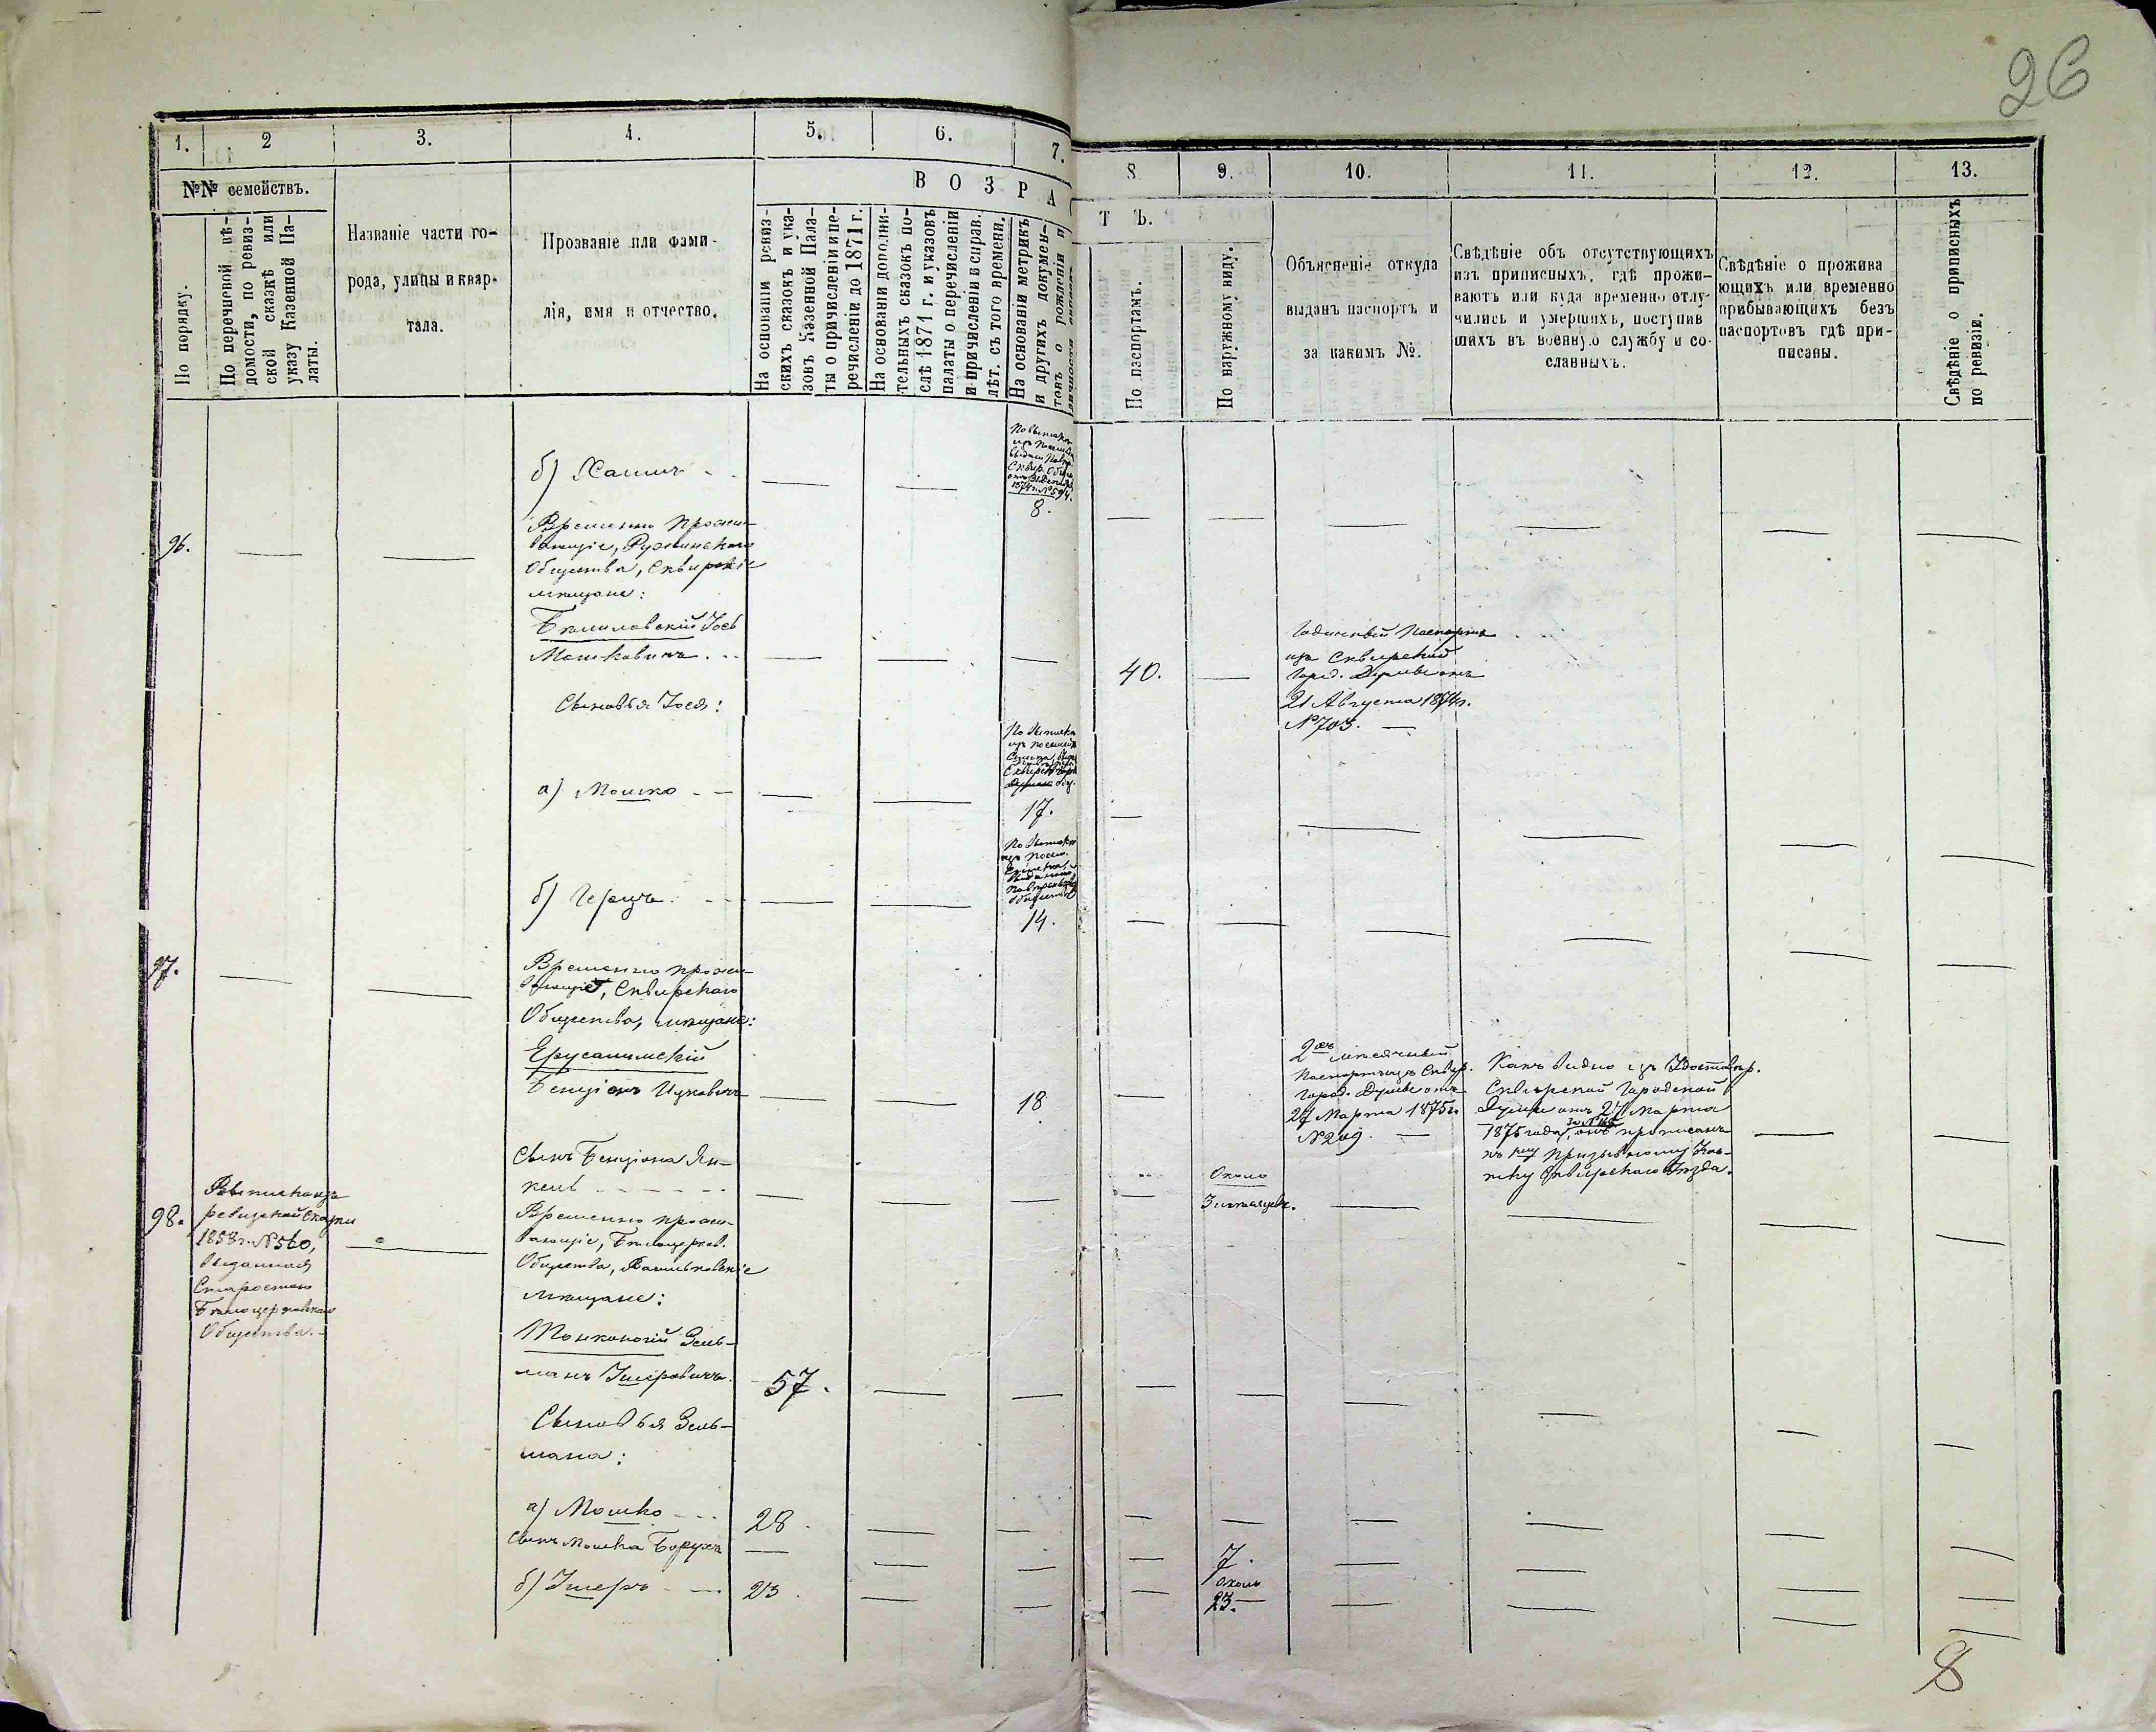 26
1.
2
3.
4.
5.
6.
7.
8
9.
10.
11.
12.
13.
№№ семействъ.
По порядку.
По перечневой вѣ-
домости, по ревиз-
ской сказкѣ или
указу Казенной Па-
латы.
Названіе части го-
рода, улицы и квар-
тала.
Прозваніе или фами-
лія, имя и отчество.
ВОЗРА
ТЪ.
На основаніи ревиз-
скихъ сказокъ и ука-
зовъ Казенной Пала-
ты о причисленіи и пе-
речисленіи до 1871 г.
На основаніи дополни-
тельныхъ сказокъ по-
слѣ 1871 г. и указовъ
палаты о перечисленіи
и причисленіи в справ.
лѣт. съ того времени.
На основаніи метрикъ
и другихъ докумен-
товъ о рожденіи и
По паспортамъ.
По наружному виду.
Объясненіе откуда
выданъ паспортъ и
за какимъ №.
Свѣдѣніе объ отсутствующихъ
изъ приписныхъ, гдѣ прожи-
ваютъ или куда временно отлу-
чились и умершихъ, поступив
шихъ въ военную службу и со-
сланныхъ.
Свѣдѣніе о прожива
ющихъ или временно
прибывающихъ безъ
паспортовъ гдѣ при-
писаны.
Свѣдѣніе о приписныхъ
по ревизіи.
б) Хаимъ
1874 г. № 594.
8.
96.
Временно прожи-
вающіе, Ружинскаго
Общества, Сквирскіе
мѣщане:
Бѣлиловскій Іось
Мошковичъ
40.
Годичный Паспортъ
изъ Сквирской
Город. Думы отъ
21 Августа 1874 г.
№ 703.
Сыновья Іося:
По выписке
изъ посемей
а) Мошко
17.
По выписке
изъ посем.
б) Герцъ
14.
97.
Временно прожи-
вающіе, Сквирскаго
Общества, мѣщане:
Ерусалимскій
Бенціонъ Ицковичъ
18
2хъ мѣсячный
Паспортъ изъ Сквир.
Город. Думы отъ
27 Марта 1875 г.
№ 209.
Какъ видно изъ Удостовѣр.
Сквирской Городской
Думы отъ 27 Марта
1875 года за № онъ приписанъ
къ призывному
Сквирскаго Уѣзда.
Сынъ Бенціона Ян-
кель
Около
3 мѣсяцевъ.
98.
Выписка изъ
ревизской сказки
1858 г. № 560,
выданная
Старостою
Бѣлоцерковскаго
Общества.
Временно прожи-
вающіе, Бѣлоцерков.
Общества, Васильковскіе
мѣщане:
Тонконогій Зель-
манъ Ішеровичъ
57.
Сыновья Зель-
мана:
а) Мошко
28
Сынъ Мошка Борухъ
7.
б) Ішеръ
23
около
23.
8